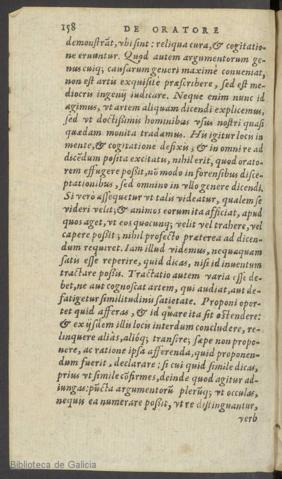 158 DE ORATORE
demonstrãt, vbi sint: reliqua cura, & cogitatio-
ne eruuntur. Quod autem argumentorum ge-
nus cuiq; causarum generi maximè conueniat,
non est artis exquisitæ præscribere, sed est me-
diocris ingenij iudicare. Neque enim nunc id
agimus, vt artem aliquam dicendi explicemus,
sed vt doctissimis hominibus vsus nostri quasi
quædam monita tradamus. His igitur locis in
mente, & cogitatione defixis, & in omni re ad
dicẽdum posita excitatis, nihil erit, quod orato-
rem effugere possit, nõ modo in forensibus disce-
ptationibus, sed omnino in vllo genere dicendi.
Si verò assequetur vt talis videatur, qualem se
videri velit; & animos eorum ita afficiat, apud
quos aget, vt eos quocunq; velit vel trahere, vel
rapere possit; nihil profectò præterea ad dicen-
dum requiret. Iam illud videmus, nequaquam
satis esse reperire, quid dicas, nisi id inuentum
tractare possis. Tractatio autem varia esse de-
bet, ne aut cognoscat artem, qui audiat, aut de-
fatigetur similitudinis satietate. Proponi opor-
tet quid afferas, & id quare ita sit ostendere:
& ex ijsdem illis locis interdum concludere, re-
linquere aliàs, aliòq; transire; sæpe non propo-
nere, ac ratione ipsa afferenda, quid proponen-
dum fuerit, declarare: si cui quid simile dicas,
prius vt simile cõfirmes, deinde quod agitur ad-
iungas: pũcta argumentorũ plerũq; vt occulas,
nequis ea numerare possit, vt re distinguantur,
verb
Biblioteca de Galicia